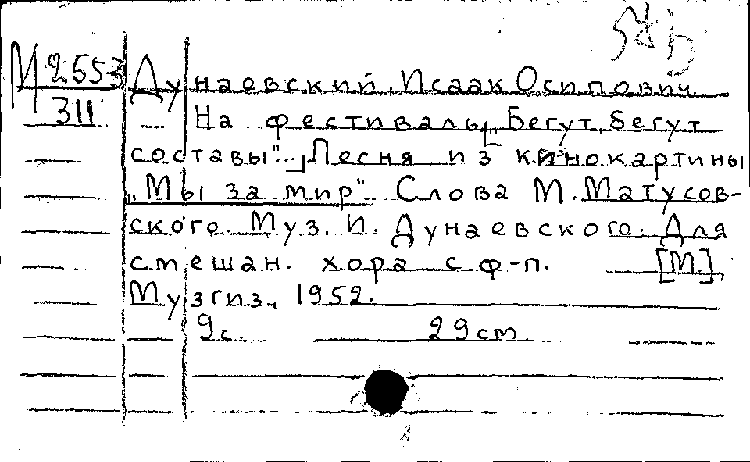 М 2553
311
Дунаевский Исаак Осипович
На фестиваль [„Бегут, бегут
составы"...] Песня из кинокартины
„Мы за мир". Слова М. Матусов-
ского. Муз. И. Дунаевского. Для
смешан. хора с ф-п. [М.]
Музгиз, 1952.
9с. 29 см